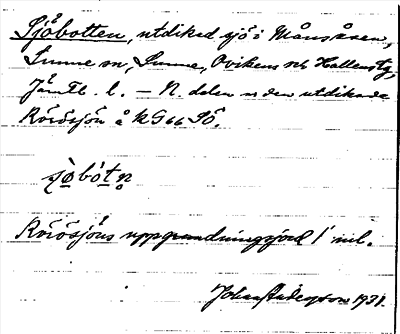 Sjöbotten, utdikad sjö i Månsåsen,
Sunne sn, Sunne, Ovikens och Hallens tg,
Jämtl. l. — N. delen av den utdikade
Rörösjön å k G 66 Sö.
sjøbótn̥
Rörösjöns uppgrundningsjord / mil.
Johan Anderson 1931.